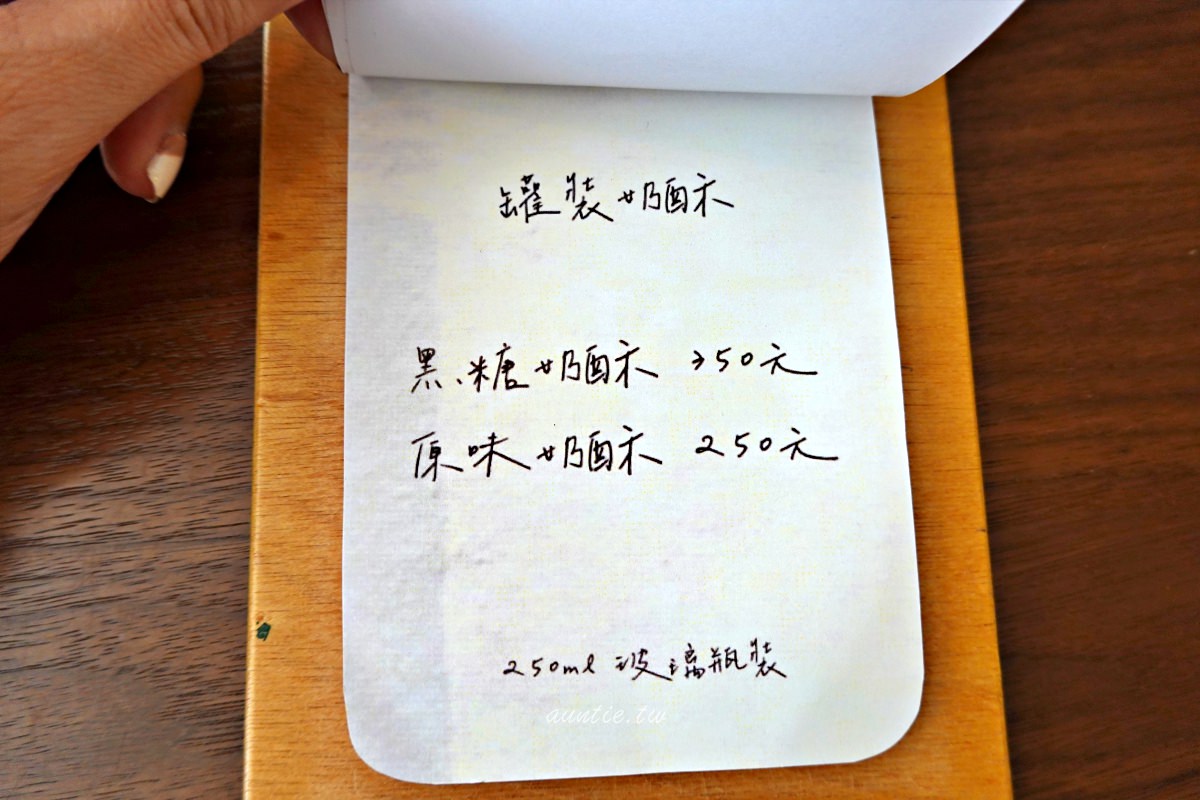 罐裝奶酥
黑糖奶酥 350元
原味奶酥 250元
250ml 玻璃瓶裝
auntie.tw